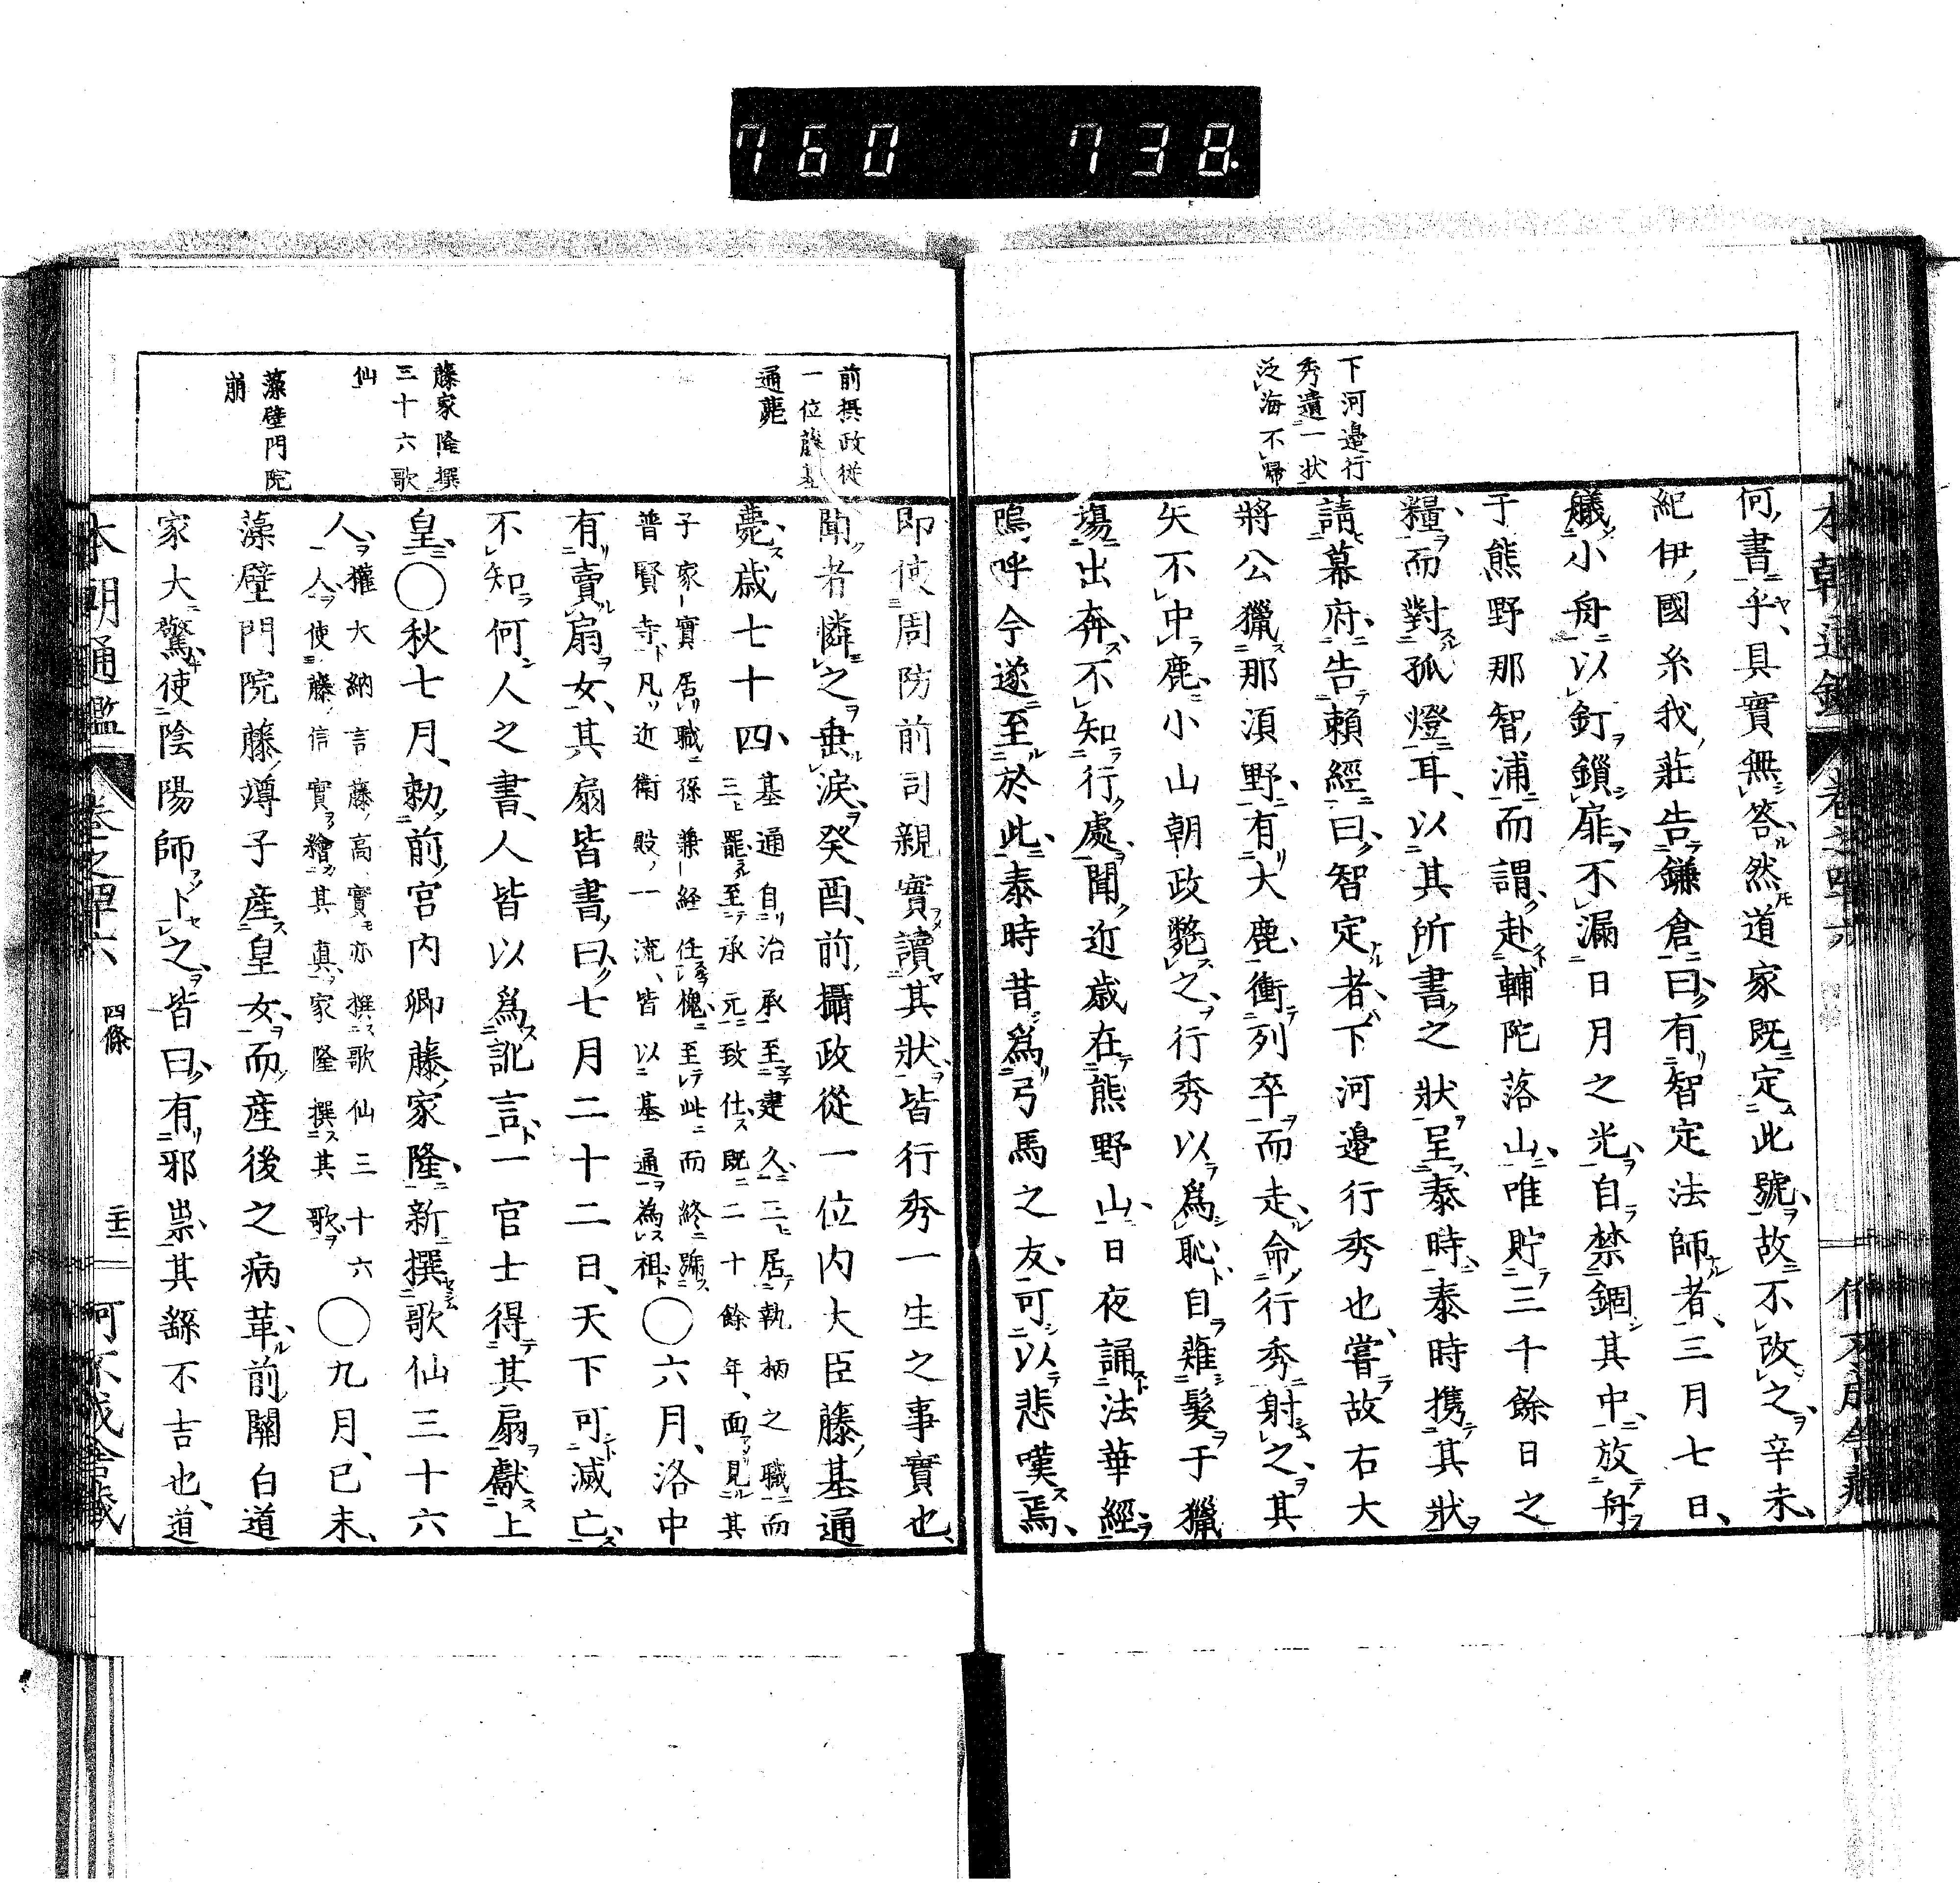 760 738.
下河邉行
秀遺一状
泛海不歸
何書乎具實無答然道家既定此號故不改之辛未
紀伊國糸我莊告鎌倉曰有智定法師者三月七日
艤小舟以釘鎖扉不漏日月之光自禁錮其中放舟
于熊野那智浦而謂赴輔陀落山唯貯三千餘日之
糧而對孤燈耳以其所書之狀呈泰時泰時携其狀
請幕府告賴經曰智定者下河邉行秀也嘗故右大
將公獵那須野有大鹿衝列卒而走命行秀射之其
矢不中鹿小山朝政斃之行秀以爲恥自薙髮于獵
塲出奔不知行處聞近歳在熊野山日夜誦法華經
嗚呼今遂至於此泰時昔爲弓馬之友可以悲嘆焉
前摂政從
一位藤基
通薨
藤家隆撰
三十六歌
仙
藻壁門院
崩
即使周防前司親實讀其狀皆行秀一生之事實也
聞者憐之垂涙癸酉前攝政從一位内大臣藤基通
薨歳七十四
基通自治承至建久三居執柄之職而
三罷至承元致仕既二十餘年面見其
子家實居職孫兼経任槐至此而終號
普賢寺凡近衛殿一流皆以基通為祖
〇六月洛中
有賣扇女其扇皆書曰七月二十二日天下可滅亡
不知何人之書人皆以爲訛言一官士得其扇獻上
皇〇秋七月勅前宮内卿藤家隆新撰歌仙三十六
人
權大納言藤高實亦撰歌仙三十六
一人使藤信實繪其真家隆撰其歌
〇九月己未
藻壁門院藤竴子産皇女而産後之病革前關白道
家大驚使陰陽師卜之皆曰有邪祟其繇不吉也道
本朝通鑑 卷之四十六 四條